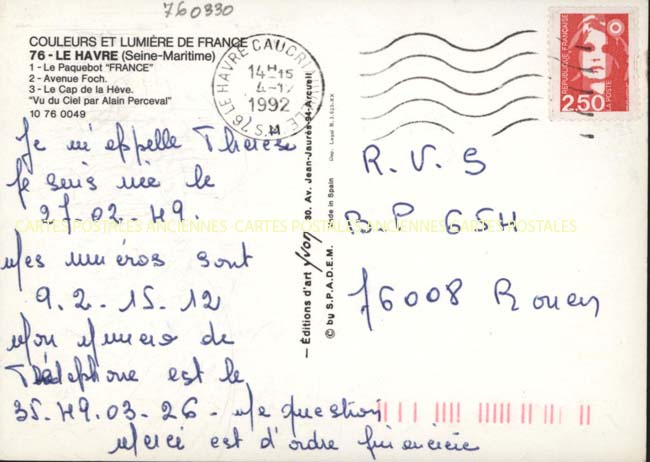 760330
COULEURS ET LUMIÈRE DE FRANCE
76 - LE HAVRE (Seine-Maritime)
1 - Le Paquebot "FRANCE"
2 - Avenue Foch.
3 - Le Cap de la Hève.
"Vu du Ciel par Alain Perceval"
10 76 0049
76 LE HAVRE CAUCRI
14H15
4-12
1992
S.M
RÉPUBLIQUE FRANÇAISE
2,50
LA POSTE
Je m'appelle Thérèse
Je suis née le
27-02-49.
Mes numéros sont
9-2-15-12
Mon numéro de
Téléphone est le
35-49-03-26 - Ma question
Merci est d'ordre financière
— Éditions d'art yvon — 30, Av. Jean-Jaurès-94-Arcueil
© by S.P.A.D.E.M. Made in Spain
R.V.S
B.P 654
76008 Rouen
CARTES POSTALES ANCIENNES - CARTES POSTALES ANCIENNES - CARTES POSTALES